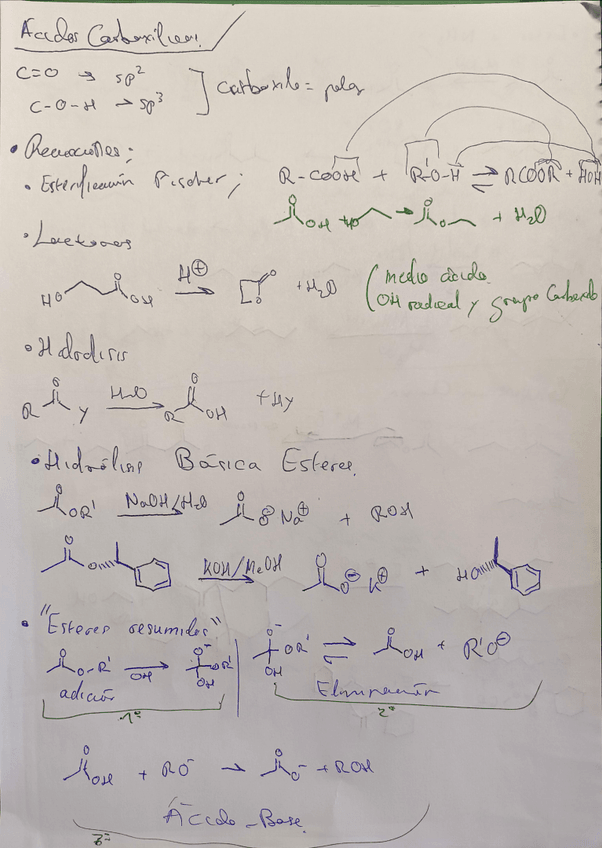 Acidos Carboxilicos!
C=O → sp²
C-O-H → sp³
Carboxilo = polar
• Reacciones:
• Esterificación Fischer; R-COOH + R'-O-H ⇌ RCOOR' + HOH
OH + HO → O + H₂O
• Lactonas
HO O OH H⊕ → O O + H₂O
(medio ácido
OH radical y grupo Carboxilo
• Hidrólisis
R O Y H₂O → R O OH + HY
• Hidrólisis Básica Esteres
O OR' NaOH/H₂O → O O⊖ Na⊕ + ROH
O O KOH/MeOH → O O⊖ K⊕ + HO
• "Esteres resumidos"
O O-R' OH → O⁻ OR' OH
O⁻ OR' OH ⇌ O OH + R'O⊖
adición
Eliminación
1º
2º
O OH + RO⁻ → O O⁻ + ROH
Ácido-Base
3º